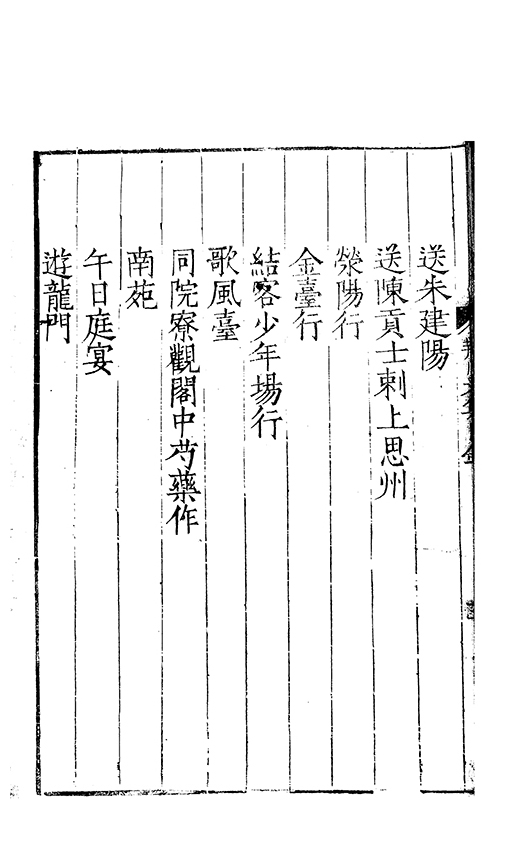 送朱建陽
送陳貢士刺上思州
滎陽行
金臺行
結客少年場行
歌風臺
同院寮觀閣中芍藥作
南苑
午日庭宴
遊龍門